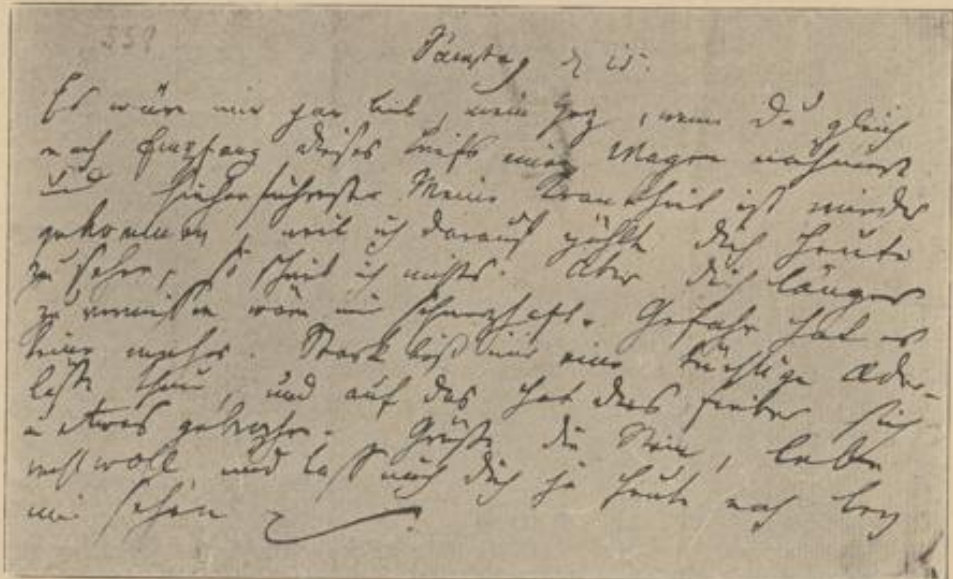 559
Samstag d 15.
Es wäre mir gar lieb, mein Herz, wenn Du gleich
nach Empfang dieses Briefs einen Wagen nähmest
und hieherführest. Meine Krankheit ist wieder
gekommen, weil ich darauf zählte Dich heute
zu sehen, so schrieb ich nichts. Aber Dich länger
zu vermissen wäre mir schmerzhaft. Gefahr hat es
keine mehr. Stark ließ mir eine tüchtige Ader-
läße thun, und auf das hat das Fieber sich
etwas gelegt. Grüße die Stein, lebe
recht wohl und laß mich Dich ja heute noch bey
mir sehen